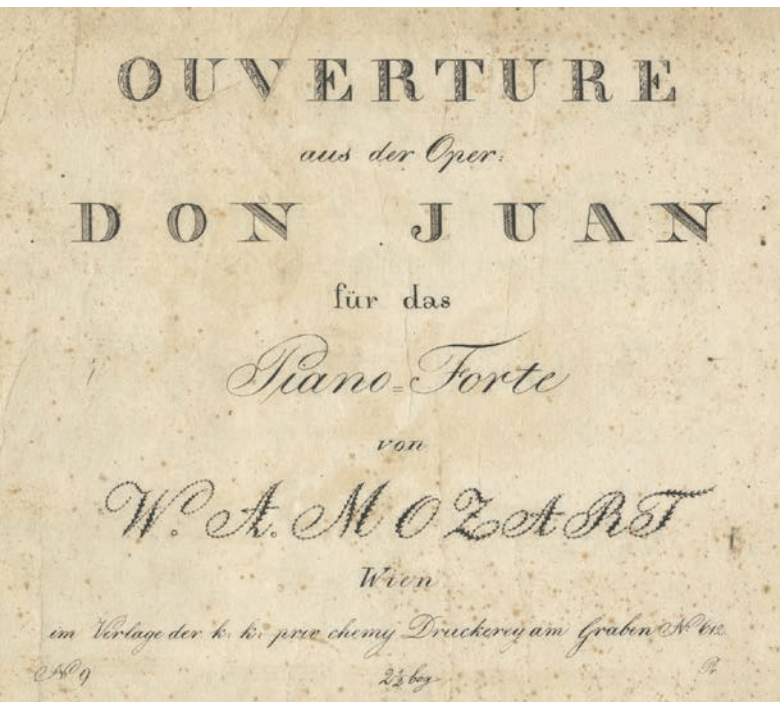 OUVERTURE
aus der Oper:
DON JUAN
für das
Piano=Forte
von
W. A. MOZART
Wien
im Verlage der k. k. priv chemy Druckerey am Graben No 612
No 9 2½ bog Pr